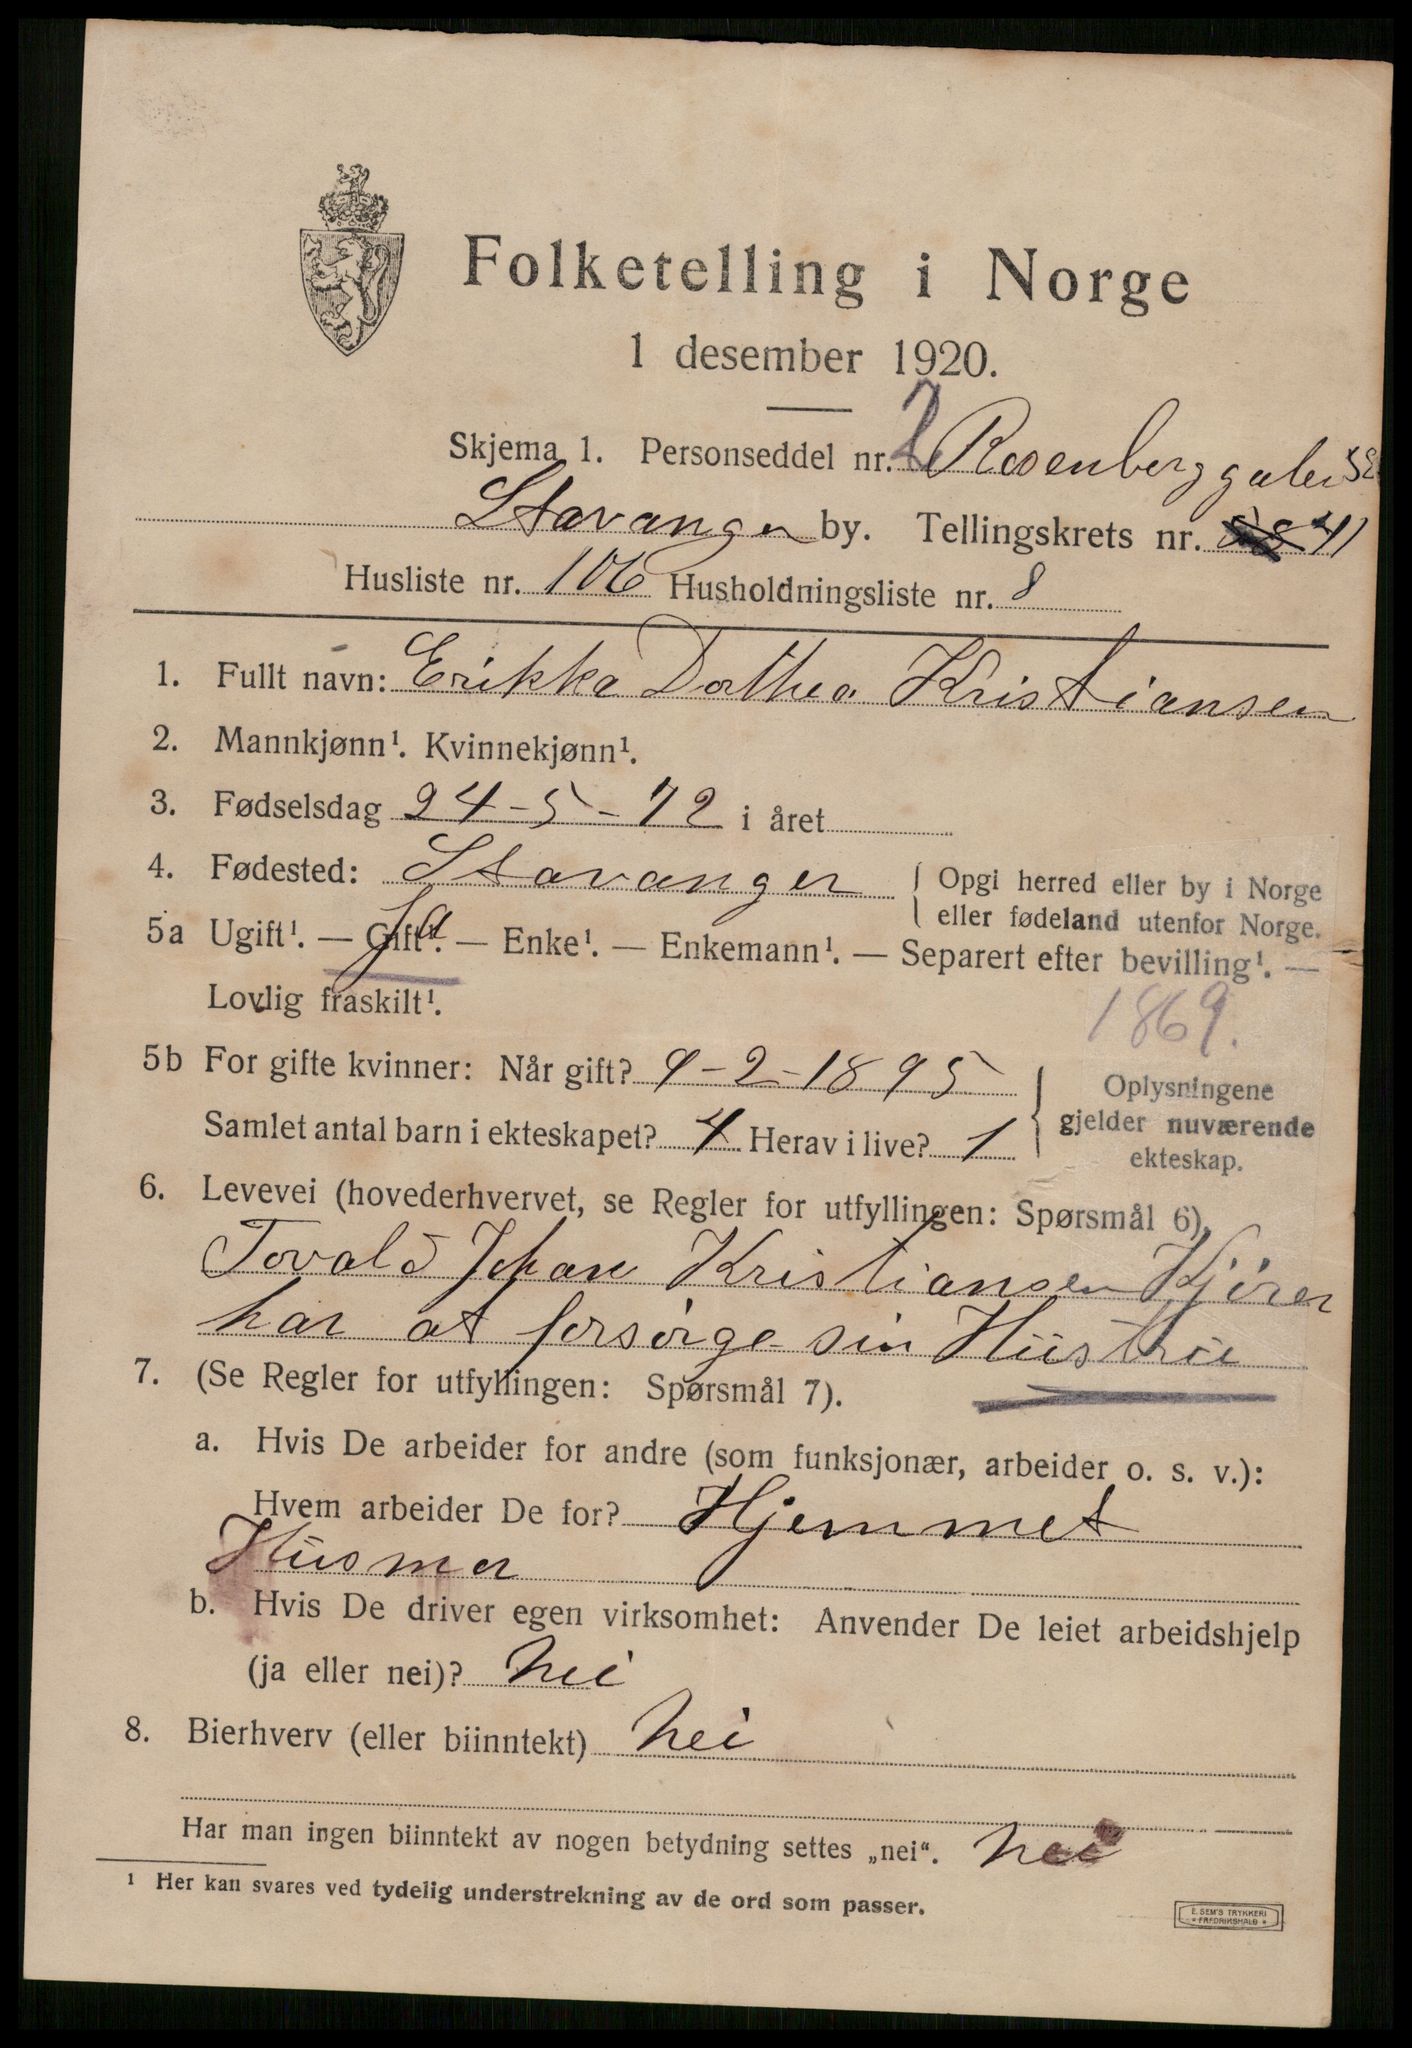 Folketelling i Norge
1 desember 1920.
Skjema 1. Personseddel nr. 2 Rosenberggaten 32
Stavanger by. Tellingskrets nr. 41
Husliste nr. 106 Husholdningsliste nr. 8
1. Fullt navn: Erikka Dorthea Kristiansen
2. Mannkjønn¹. Kvinnekjønn¹.
3. Fødselsdag 24-5-72 i året
4. Fødested: Stavanger { Opgi herred eller by i Norge
eller fødeland utenfor Norge.
5a Ugift¹. — Gift¹. Ja — Enke¹. — Enkemann¹. — Separert efter bevilling¹. —
Lovlig fraskilt¹.
1869.
5b For gifte kvinner: Når gift? 9-2-1895
Samlet antal barn i ekteskapet? 4 Herav i live? 1
Oplysningene
gjelder nuværende
ekteskap.
6. Levevei (hovederhvervet, se Regler for utfyllingen: Spørsmål 6).
Tovald Johan Kristiansen Kjörer
har at forsörge sin Hustru
7. (Se Regler for utfyllingen: Spørsmål 7).
a. Hvis De arbeider for andre (som funksjonær, arbeider o. s. v.):
Hvem arbeider De for? Hjemmet
Husmor
b. Hvis De driver egen virksomhet: Anvender De leiet arbeidshjelp
(ja eller nei)? nei
8. Bierhverv (eller biinntekt) nei
Har man ingen biinntekt av nogen betydning settes „nei“. nei
¹ Her kan svares ved tydelig understrekning av de ord som passer.
E. SEM'S TRYKKERI
* FREDRIKSHALD *